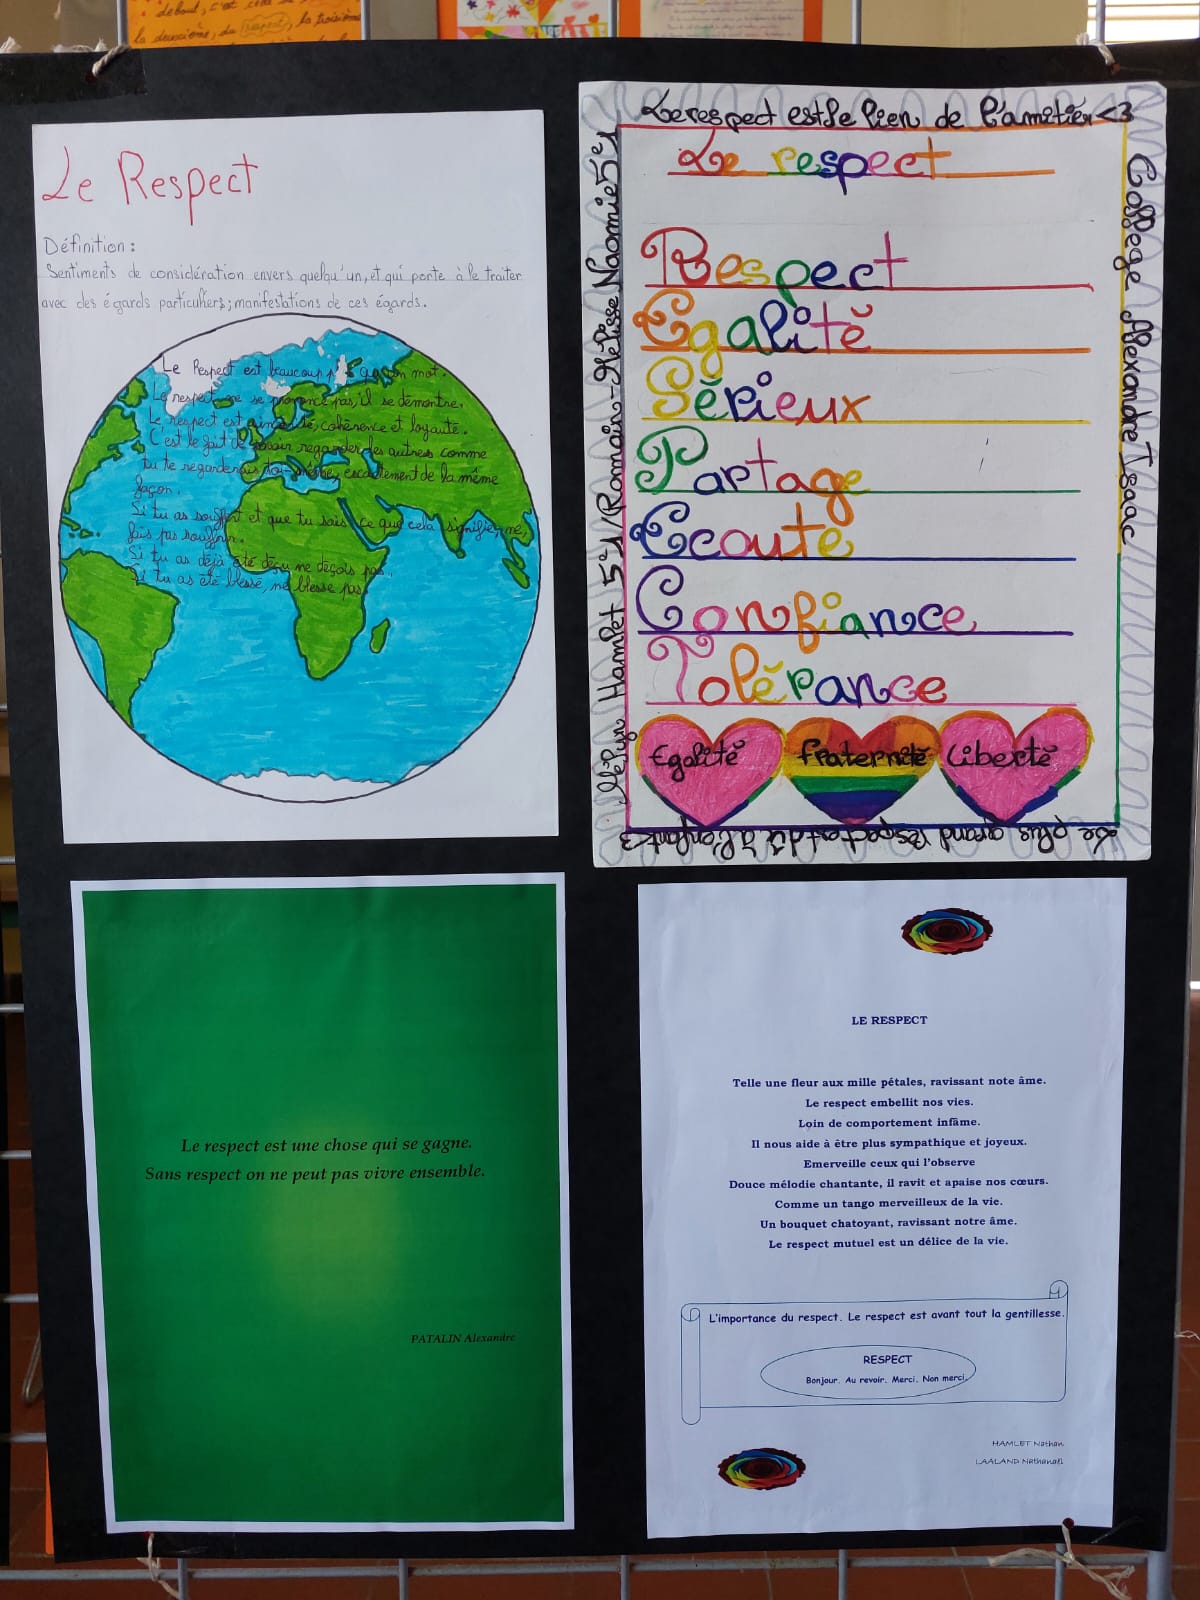 debout, c'est cela
la deuxième, du respect, la troisième
Le Respect
Définition :
Sentiments de considération envers quelqu'un, et qui porte à le traiter
avec des égards particuliers; manifestations de ces égards.
Le Respect est beaucoup mot.
Le respect ne se prononce pas, il se démontre.
Le respect est cohérence et loyauté.
C'est le fait de pouvoir regarder des autres comme
tu te regarderais toi-même, escactement de la même
façon.
Si tu as souffert et que tu sais ce que cela signifie, ne
fais pas souffrir.
Si tu as déjà été déçu ne déçois pas.
Si tu as été blessé, ne blesse pas.
Le respect est le lien de l'amitié <3
Le respect
Respect
Egalité
Sérieux
Partage
Ecoute
Confiance
Tolérance
Egalité fraternité Liberté
Hamlet 5e1/Romain-Mélisse Naomie 5e1
College Alexandre Isaac
Le plus grand respect est dû à l'enfant <3
Le respect est une chose qui se gagne.
Sans respect on ne peut pas vivre ensemble.
PATALIN Alexandre
LE RESPECT
Telle une fleur aux mille pétales, ravissant note âme.
Le respect embellit nos vies.
Loin de comportement infâme.
Il nous aide à être plus sympathique et joyeux.
Emerveille ceux qui l'observe
Douce mélodie chantante, il ravit et apaise nos cœurs.
Comme un tango merveilleux de la vie.
Un bouquet chatoyant, ravissant notre âme.
Le respect mutuel est un délice de la vie.
L'importance du respect. Le respect est avant tout la gentillesse.
RESPECT
Bonjour. Au revoir. Merci. Non merci.
HAMLET Nathan
LAALAND Nathanaël